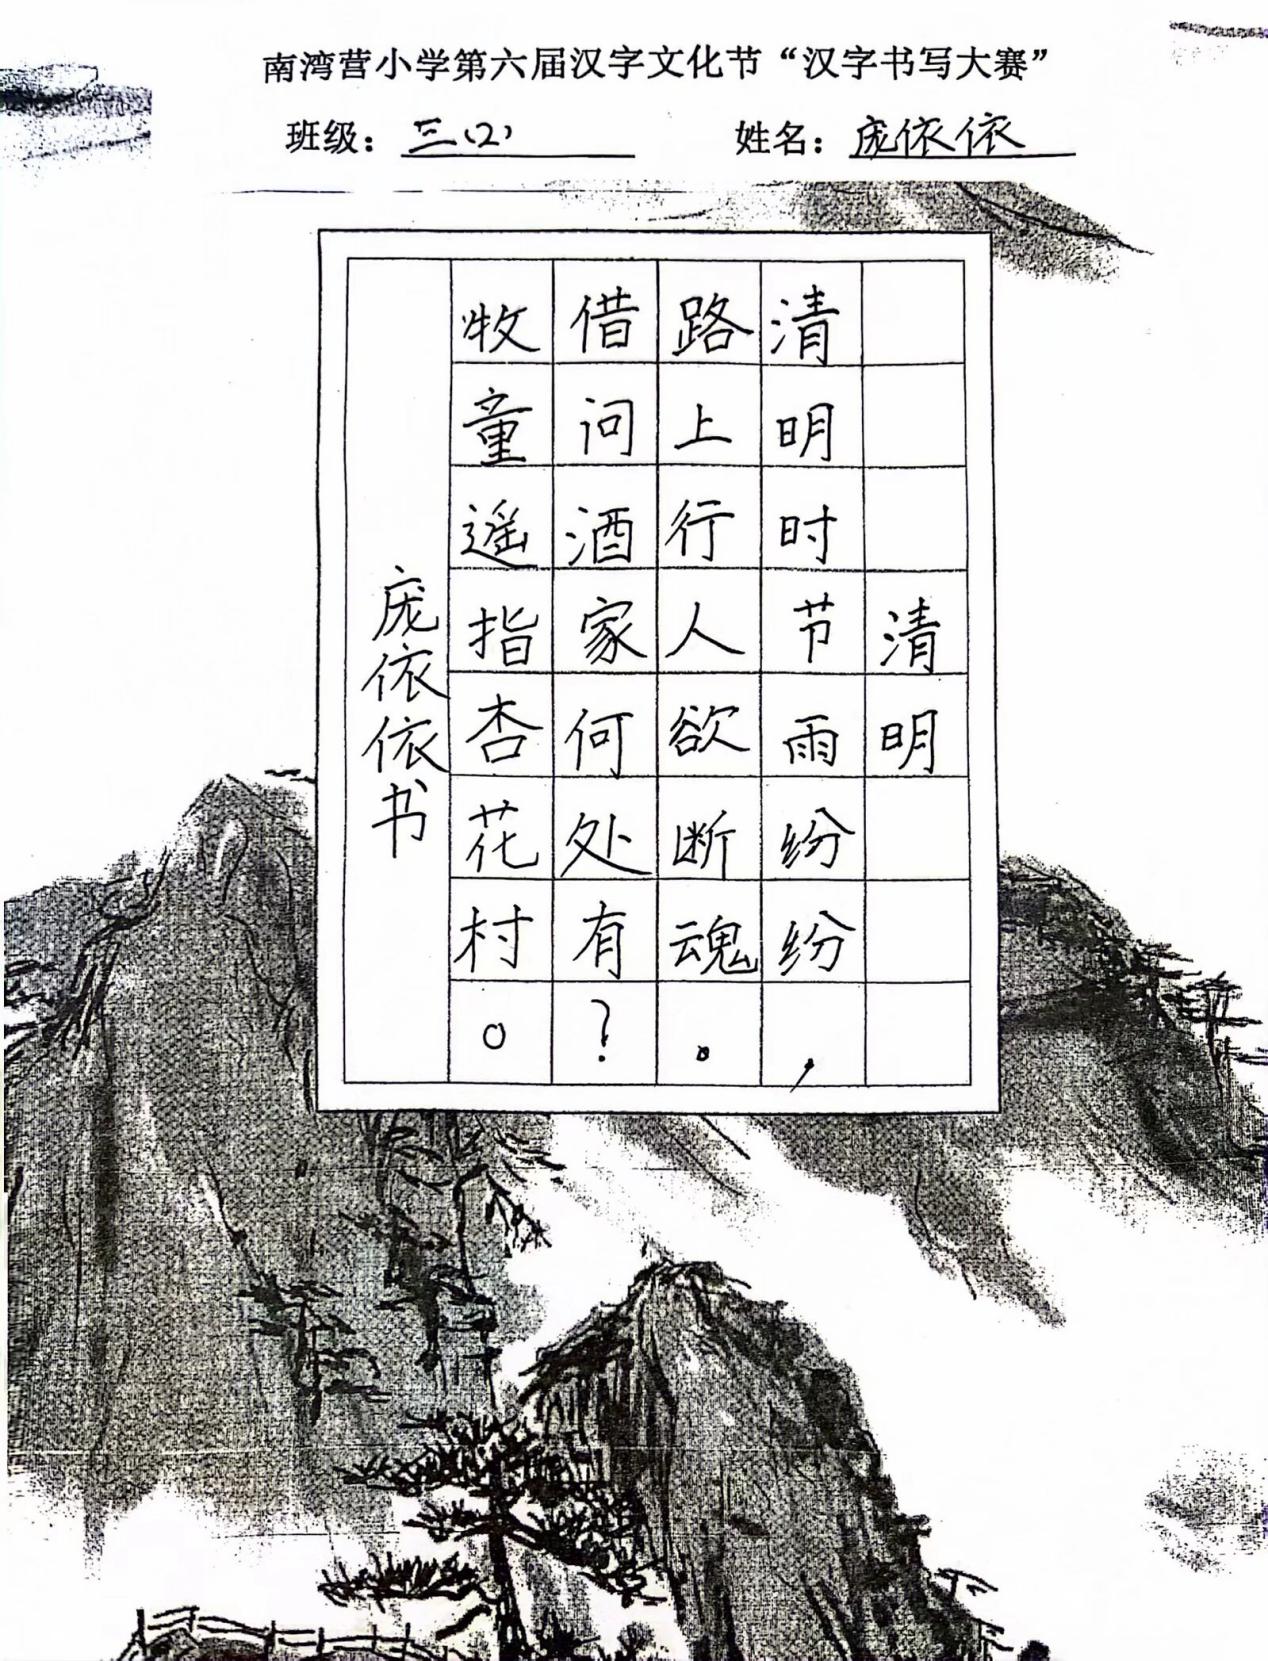 南湾营小学第六届汉字文化节“汉字书写大赛”
班级：三（2） 姓名：庞依依
清明
清明时节雨纷纷，
路上行人欲断魂。
借问酒家何处有？
牧童遥指杏花村。
庞依依书